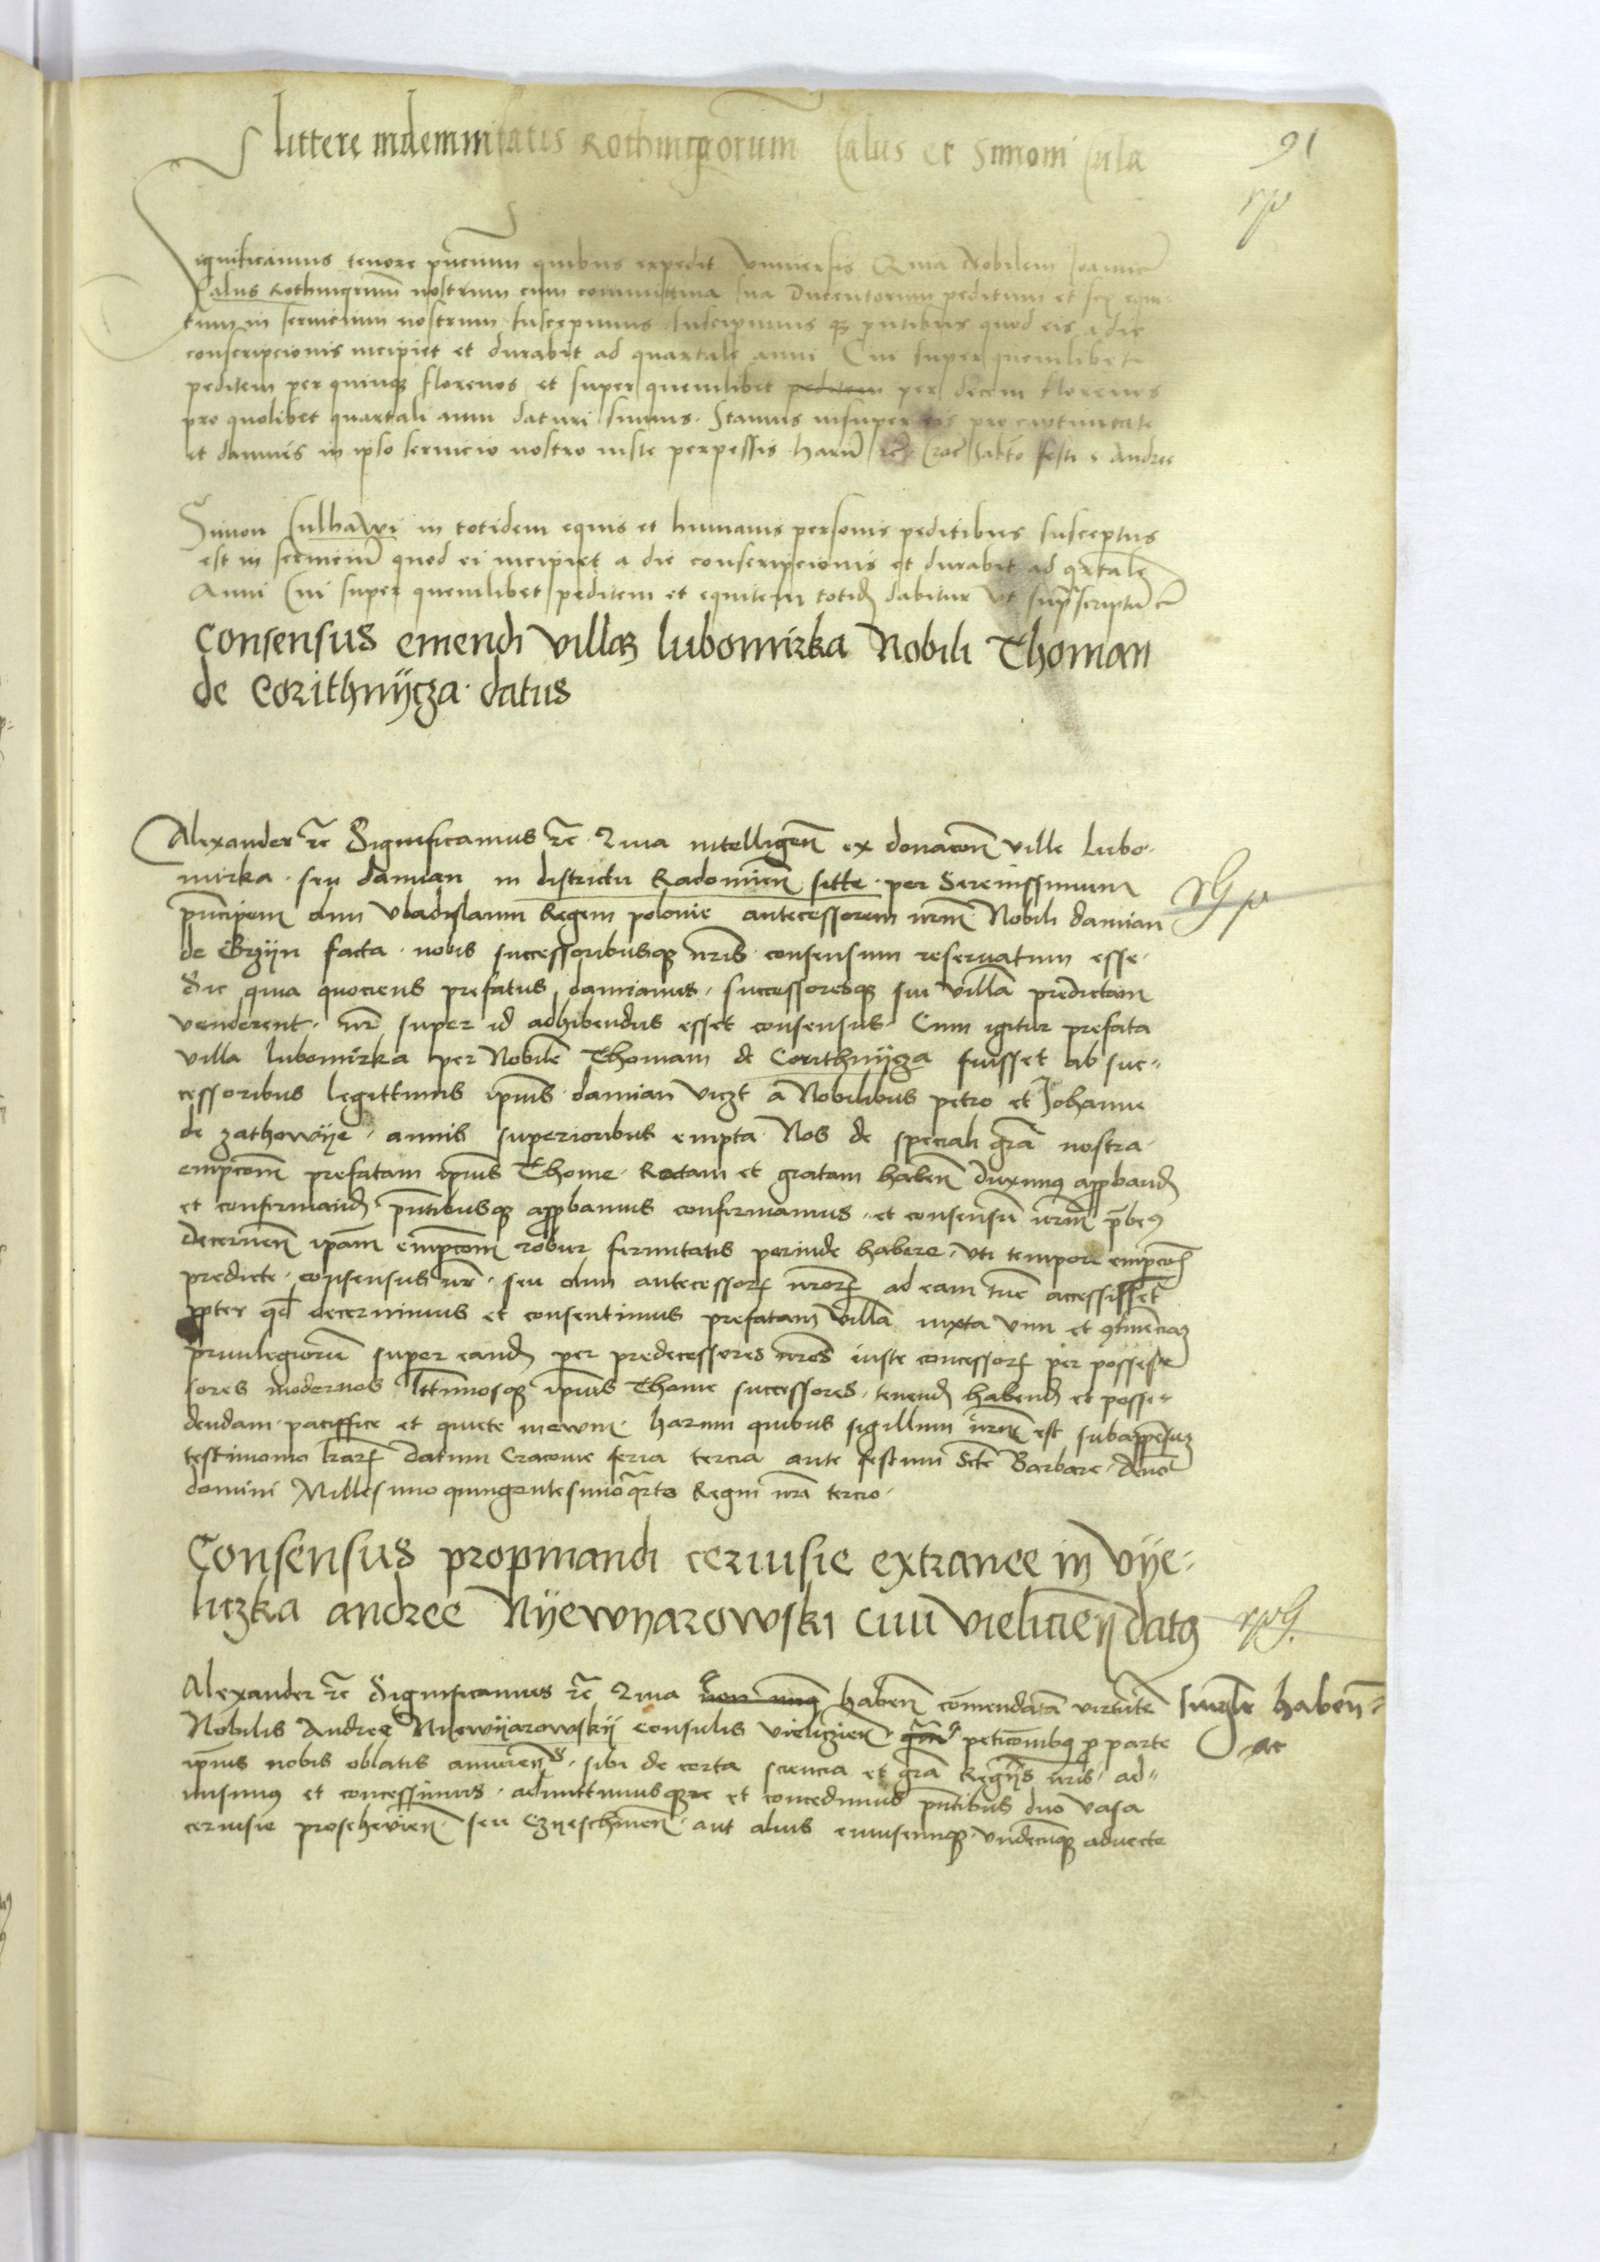 littere indemnitatis Rothmgrorum Calus et Simoni Cula
91
Significamus tenore pñcium quibus expedit vniuersis Quia Nobilem Joannē
Calus Rothmgrum nostrum cum comittiua sua Ducentorum peditum et sex equi-
tum in seruicium nostrum suscepimus suscipimusqꝫ pñtibus quod eis a die
conscripcionis incipiet et durabit ad quartale anni Cui super quemlibet
peditem per quinqꝫ florenos et super quemlibet peditem per decem florenos
pro quolibet quartali anni daturi sumus. Stamus insuper eis pro captiuitate
et damnis in ipso seruicio nostro iuste perpessis harū Crac̄ festi s Andree
Simon CulhaWi in totidem equis et humanis personis peditibus susceptus
est in seruiciū quod ei incipiet a die conscripcionis et durabit ad qrtale
Anni Cui super quemlibet peditem et equitem totidꝫ dabitur vt supra scriptū ē
Consensus emendi villaꝫ lubomirka Nobili Thoman
de Corithnycza datus
Alexander ⁊c̄ Significamus ⁊c̄ Quia intelligeñ ex donacoñ ville Lubo-
mirka seu damian in districtu Radomieñ sitte per Serenissimum
pñcipem olim Vladislaum Regem polonie antecessorem nr̄m Nobili damian
de Gzyn facta nobis successoribusqꝫ nr̄is consensum reseruatum esse
Sic quia quociens prefatus damianus successoresqꝫ sui villā predictam
venderent nr̄ super id adhibendus esset consensus Cum igitur prefata
villa lubomirka per Nobilē Thomam de Corithnycza fuisset ab suc-
cessoribus legittimis ip̄ius damian viczt a Nobilibus petro et Johanne
de zathowye annis superioribus empta Nos de speciali grā nostra
empcom̄ prefatam ip̄ius Thome Ratam et gratam habeñ duximꝰ appbandꝫ
et confirmandꝫ pñtibusqꝫ appbamus confirmamus et consensū nr̄m p̄bemꝰ
Decerneñ ip̄am empcom̄ robur firmitatis perinde habere vti tempore empcoīs
predicte consensus nr̄ seu olim antecessorꝝ nr̄orꝝ ad eam tūc accessisset
ppter qd decernimus et consentimus prefatam villā iuxta vim et ꝯtinēciaꝫ
priuilegiorū super eandꝫ per predecessores nr̄os iuste concessorꝝ per posses-
sores modernos lttimosqꝫ ip̄ius Thome successores tenendꝫ habendꝫ et posse-
dendam paciffice et quiete in ewm harum quibus sigillum nr̄m est subappēsuꝫ
testimonio lrarꝝ Datum Cracouie feria tercia ante festum Scte Barbare Anno
domini Millesimo quingentesimoqrto Regni nr̄i tercio
Consensus propinandi ceruisie extranee in vye-
liczka andree Nyewyarowski ciui vielicieñ datꝰ
Alexander ⁊c̄ Significamus ⁊c̄ Quia habeñ comendatā virtutē
Nobilis Andree Nyewyarowsky Consulis vieliczieñ peticoībꝰ p parte
ip̄ius nobis oblatis annueñ sibi de certa sciencia et grā Regys nr̄is ad-
misimꝰ et concessimus admittimusqꝫ et concedimus pñtibus duo vasa
ceruisie proschevieñ seu Czyeschineñ aut alius cuiuscumqꝫ vndecūqꝫ aduecte